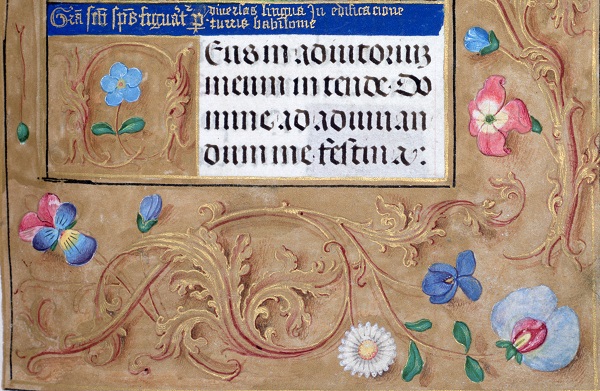 Grā scti spūs figuāt' p diversas lingua In edificacione
turris babilonie
Deus in adiutorium
meum intende. Do
mine ad adiuuan
dum me festina: